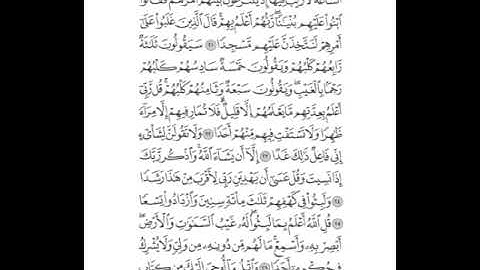 السَّاعَةَ لَا رَيْبَ فِيهَا إِذْ يَتَنَٰزَعُونَ بَيْنَهُمْ أَمْرَهُمْ فَقَالُوا۟
ٱبْنُوا۟ عَلَيْهِم بُنْيَٰنًا رَّبُّهُمْ أَعْلَمُ بِهِمْ قَالَ ٱلَّذِينَ غَلَبُوا۟ عَلَىٰٓ
أَمْرِهِمْ لَنَتَّخِذَنَّ عَلَيْهِم مَّسْجِدًا ٢١ سَيَقُولُونَ ثَلَٰثَةٌ
رَّابِعُهُمْ كَلْبُهُمْ وَيَقُولُونَ خَمْسَةٌ سَادِسُهُمْ كَلْبُهُمْ
رَجْمًۢا بِٱلْغَيْبِ وَيَقُولُونَ سَبْعَةٌ وَثَامِنُهُمْ كَلْبُهُمْ قُل رَّبِّىٓ
أَعْلَمُ بِعِدَّتِهِم مَّا يَعْلَمُهُمْ إِلَّا قَلِيلٌ فَلَا تُمَارِ فِيهِمْ إِلَّا مِرَآءً
ظَٰهِرًا وَلَا تَسْتَفْتِ فِيهِم مِّنْهُمْ أَحَدًا ٢٢ وَلَا تَقُولَنَّ لِشَا۟ىْءٍ
إِنِّى فَاعِلٌ ذَٰلِكَ غَدًا ٢٣ إِلَّآ أَن يَشَآءَ ٱللَّهُ وَٱذْكُر رَّبَّكَ
إِذَا نَسِيتَ وَقُلْ عَسَىٰٓ أَن يَهْدِيَنِ رَبِّى لِأَقْرَبَ مِنْ هَٰذَا رَشَدًا
٢٤ وَلَبِثُوا۟ فِى كَهْفِهِمْ ثَلَٰثَ مِا۟ئَةٍ سِنِينَ وَٱزْدَادُوا۟ تِسْعًا
٢٥ قُلِ ٱللَّهُ أَعْلَمُ بِمَا لَبِثُوا۟ لَهُۥ غَيْبُ ٱلسَّمَٰوَٰتِ وَٱلْأَرْضِ
أَبْصِرْ بِهِۦ وَأَسْمِعْ مَا لَهُم مِّن دُونِهِۦ مِن وَلِىٍّ وَلَا يُشْرِكُ
فِى حُكْمِهِۦٓ أَحَدًا ٢٦ وَٱتْلُ مَآ أُوحِىَ إِلَيْكَ مِن كِتَابِ